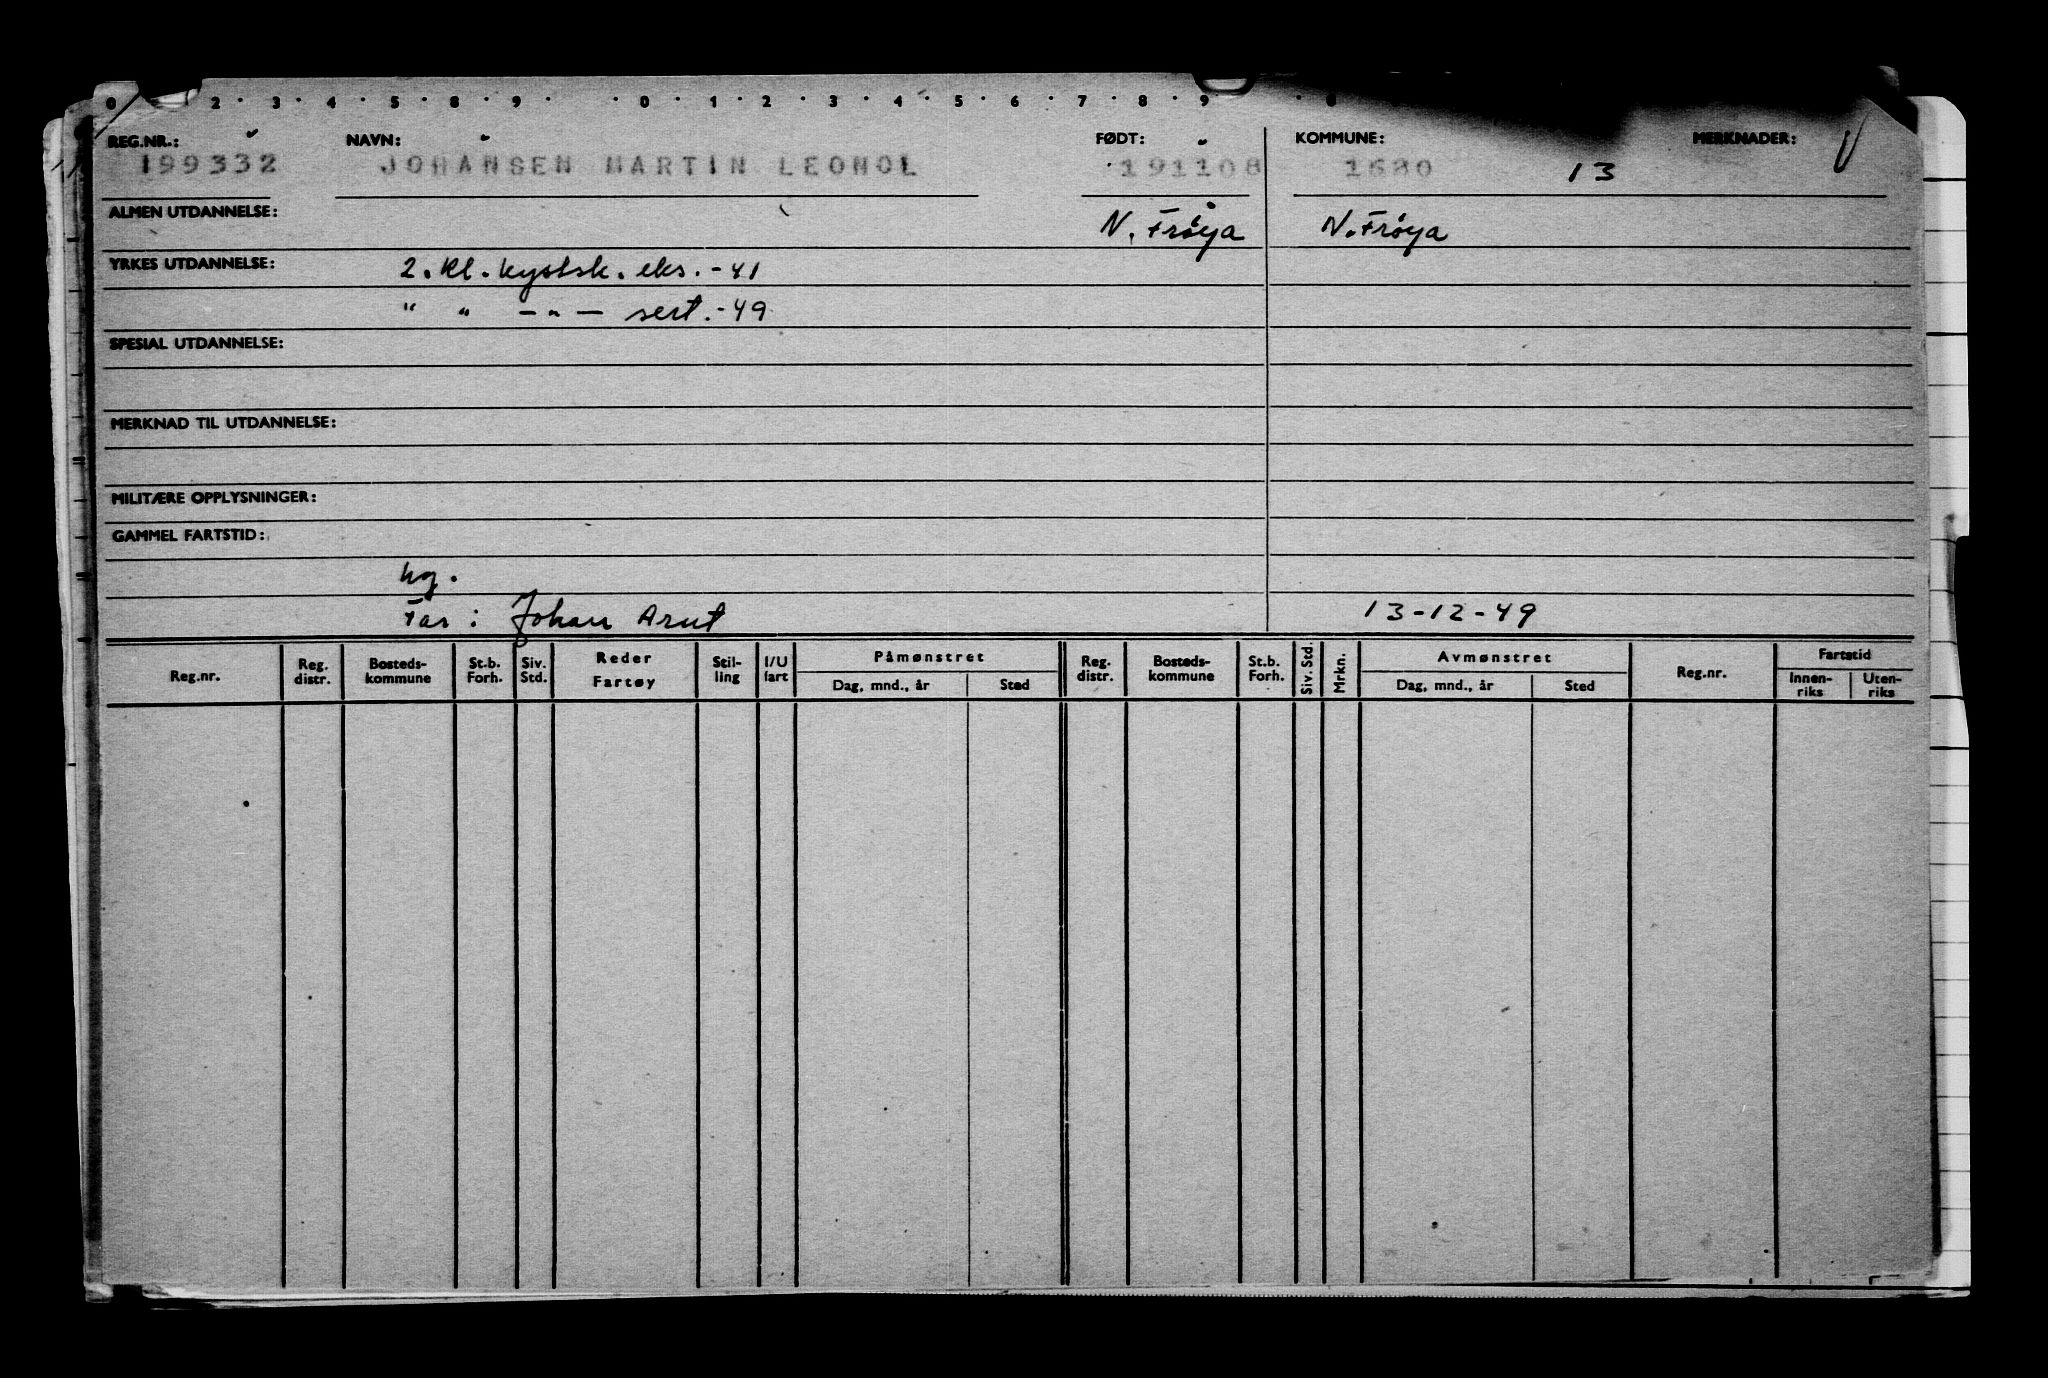 0 2 · 3 · 4 · 5 · 8 · 9 · · 0 · 1 · 2 · 3 · 4 · 5 · 6 · 7 · 8 · 9 · 0
REG.NR.: NAVN: FØDT: KOMMUNE: MERKNADER:
199332 JOHANSEN MARTIN LEONOL 191108 13
ALMEN UTDANNELSE: N. Frøya N. Frøya
YRKES UTDANNELSE: 2. kl. kystsk. eks. - 41
" " — " — sert. - 49
SPESIAL UTDANNELSE:
MERKNAD TIL UTDANNELSE:
MILITÆRE OPPLYSNINGER:
GAMMEL FARTSTID:
Far: Johan Arnt 13-12-49
Reg.nr. Reg. distr. Bosteds-kommune St.b. Forh. Siv. Std. Reder Fartøy Stil-ling I/U fart Påmønstret Dag, mnd., år Sted Reg. distr. Bosteds-kommune St.b. Forh. Siv. Std. Mrkn. Avmønstret Dag, mnd., år Sted Reg.nr. Fartstid Innen-riks Uten-riks